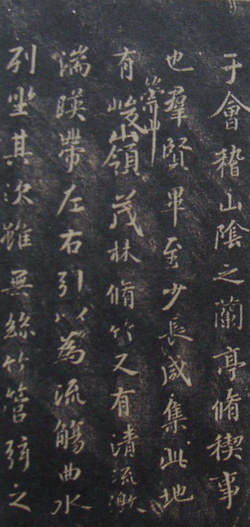 于會稽山陰之蘭亭脩禊事
也羣賢畢至少長咸集此地
有崇山峻領茂林脩竹又有清流激
湍暎帶左右引以為流觴曲水
列坐其次雖無絲竹管弦之